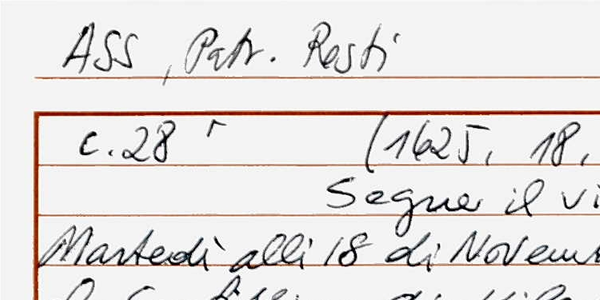 ASS, Patr. Resti
c. 28 r (1625, 18,
Segue il vi
Martedì alli 18 di Novemb